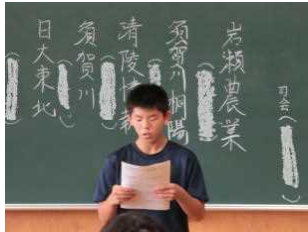 司会( )
岩瀬農業
( )
須賀川桐陽
( )
清陵情報
( )
須賀川
( )
日大東北
( )